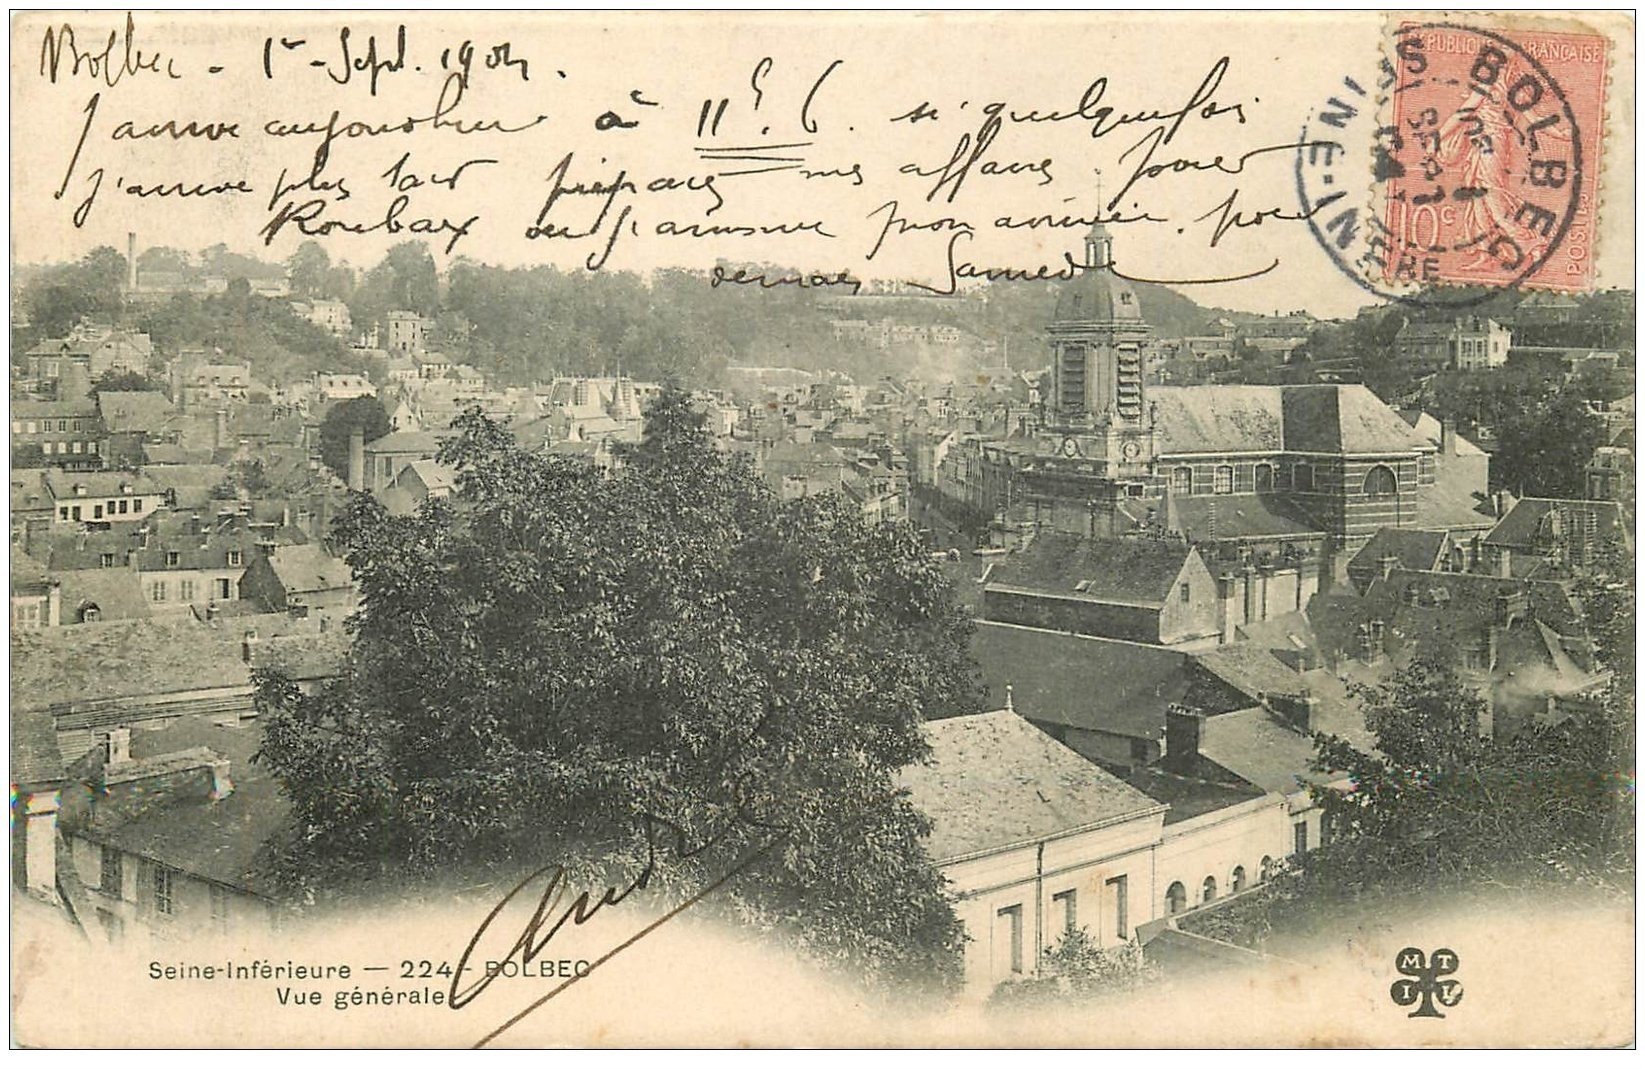 Bolbec - 1er Sept. 1904.
J'arrive aujourd'hui à 11h. 6. si quelquefois
j'arrive plus tard prépares mes affaires pour
Roubaix ou j'arrive mon arrivée. pour
demain Samedi
RÉPUBLIQUE FRANÇAISE
10c
POSTES
BOLBEC
SEINE-INFRE
André
Seine-Inférieure — 224 - BOLBEC
Vue générale
M T
I L